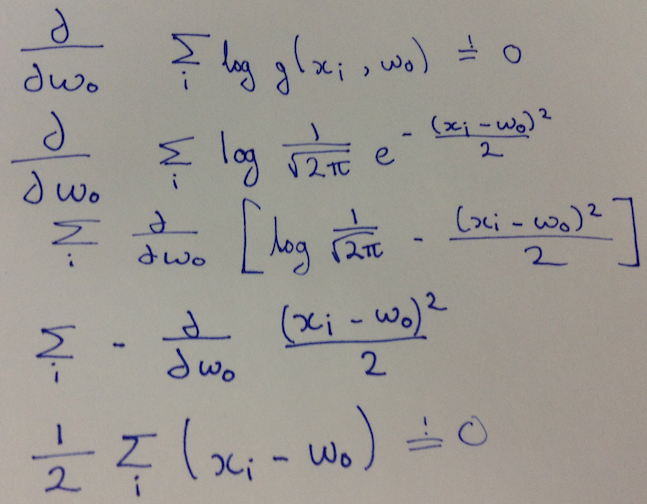 ∂/∂w₀ ∑ᵢ log g(xᵢ, w₀) ≟ 0
∂/∂w₀ ∑ᵢ log 1/√2π e^(-(xᵢ - w₀)²/2)
∑ᵢ ∂/∂w₀ [log 1/√2π - (xᵢ - w₀)²/2]
∑ᵢ - ∂/∂w₀ (xᵢ - w₀)²/2
1/2 ∑ᵢ (xᵢ - w₀) ≟ 0